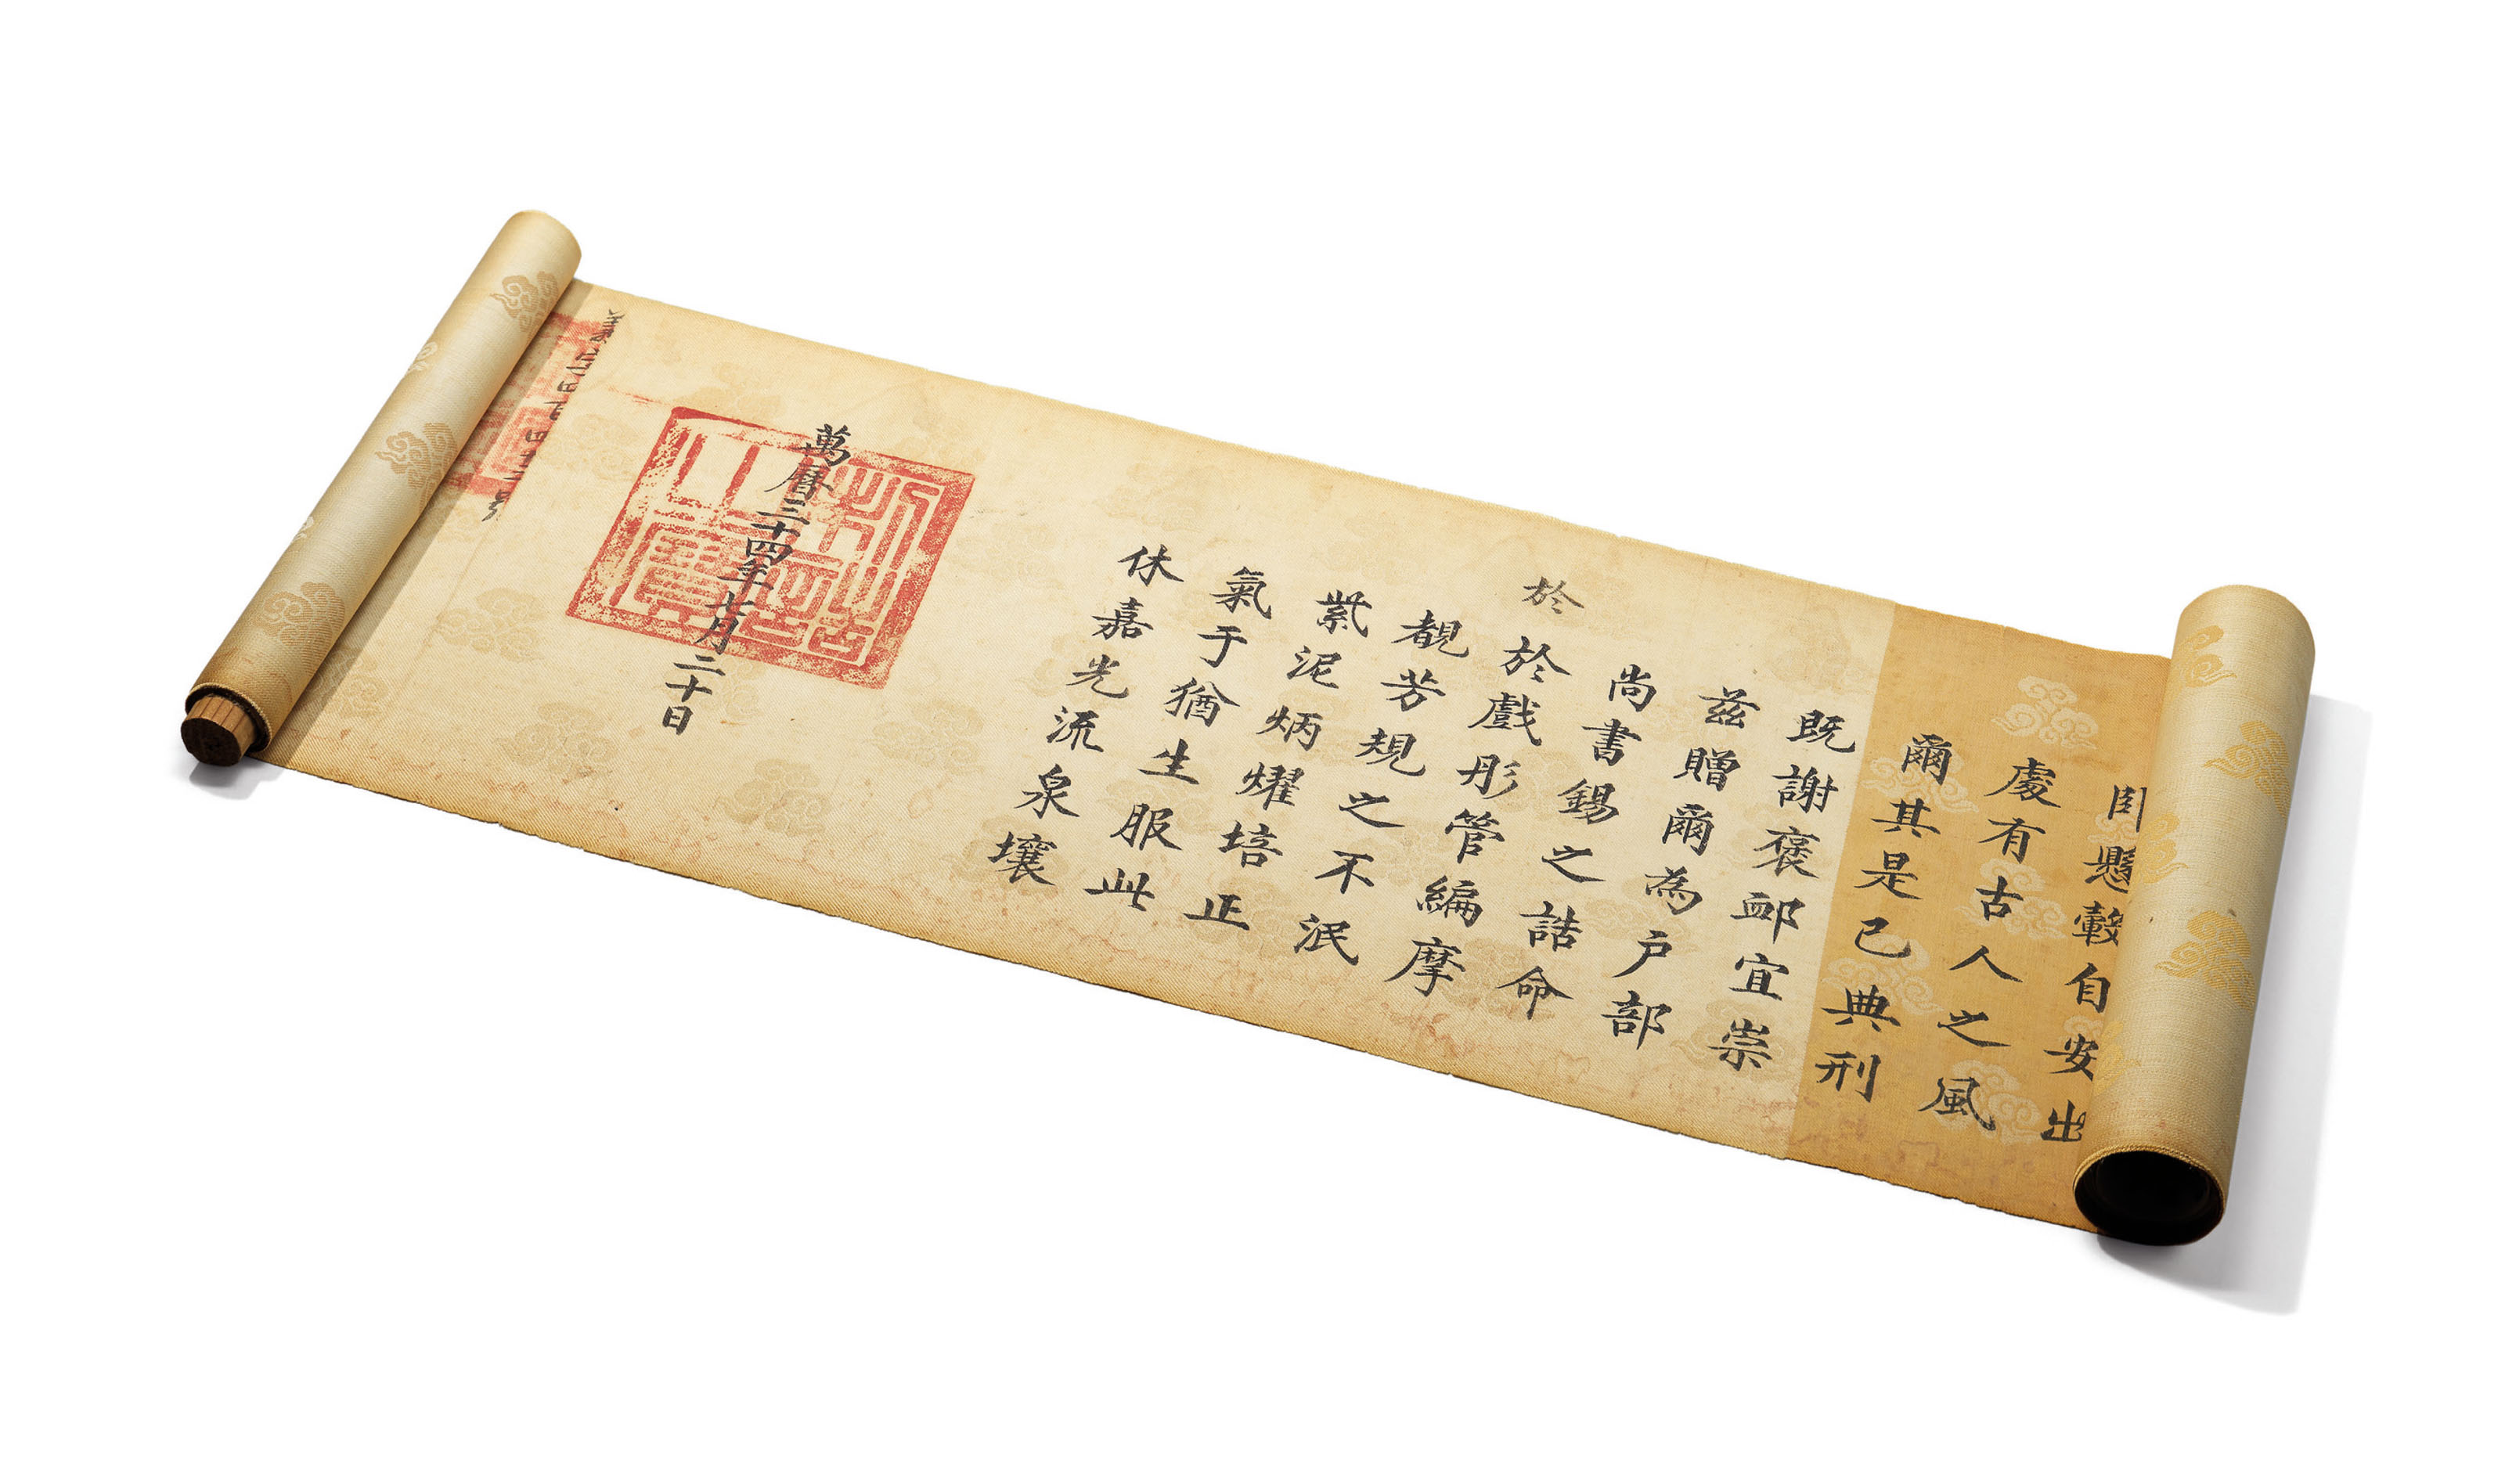 懸轂自安出
處有古人之風
爾其是已典刑
既謝褒卹宜崇
茲贈爾為户部
尚書錫之誥命
於
於戲彤管編摩
覩芳規之不泯
紫泥炳燿培正
氣于猶生服此
休嘉光流泉壤
萬曆三十四年七月二十日